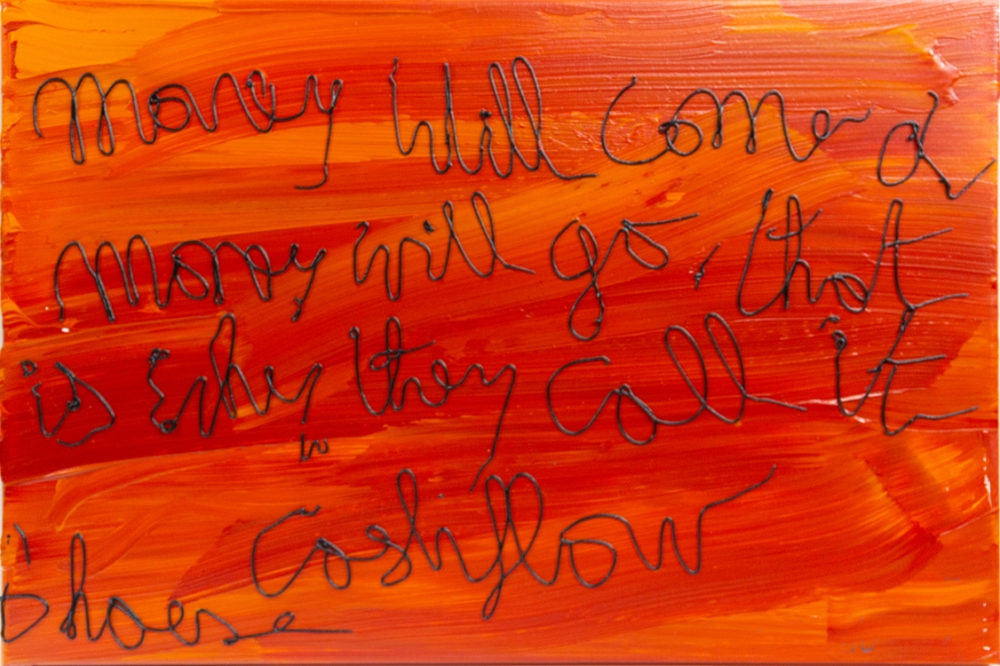 Money will come &
money will go, that
is why they call it
cashflow